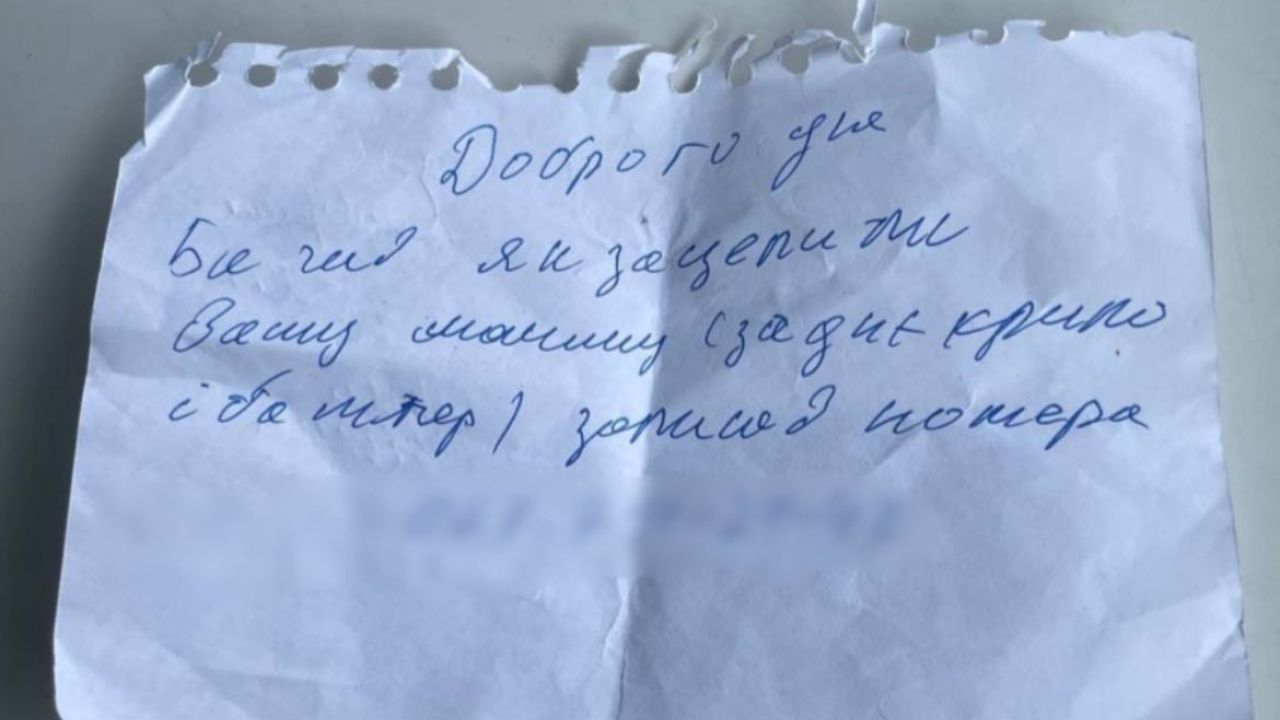 Доброго дня
Бачив як зацепити
Вашу машину (заднє крило
і бампер) записав номера